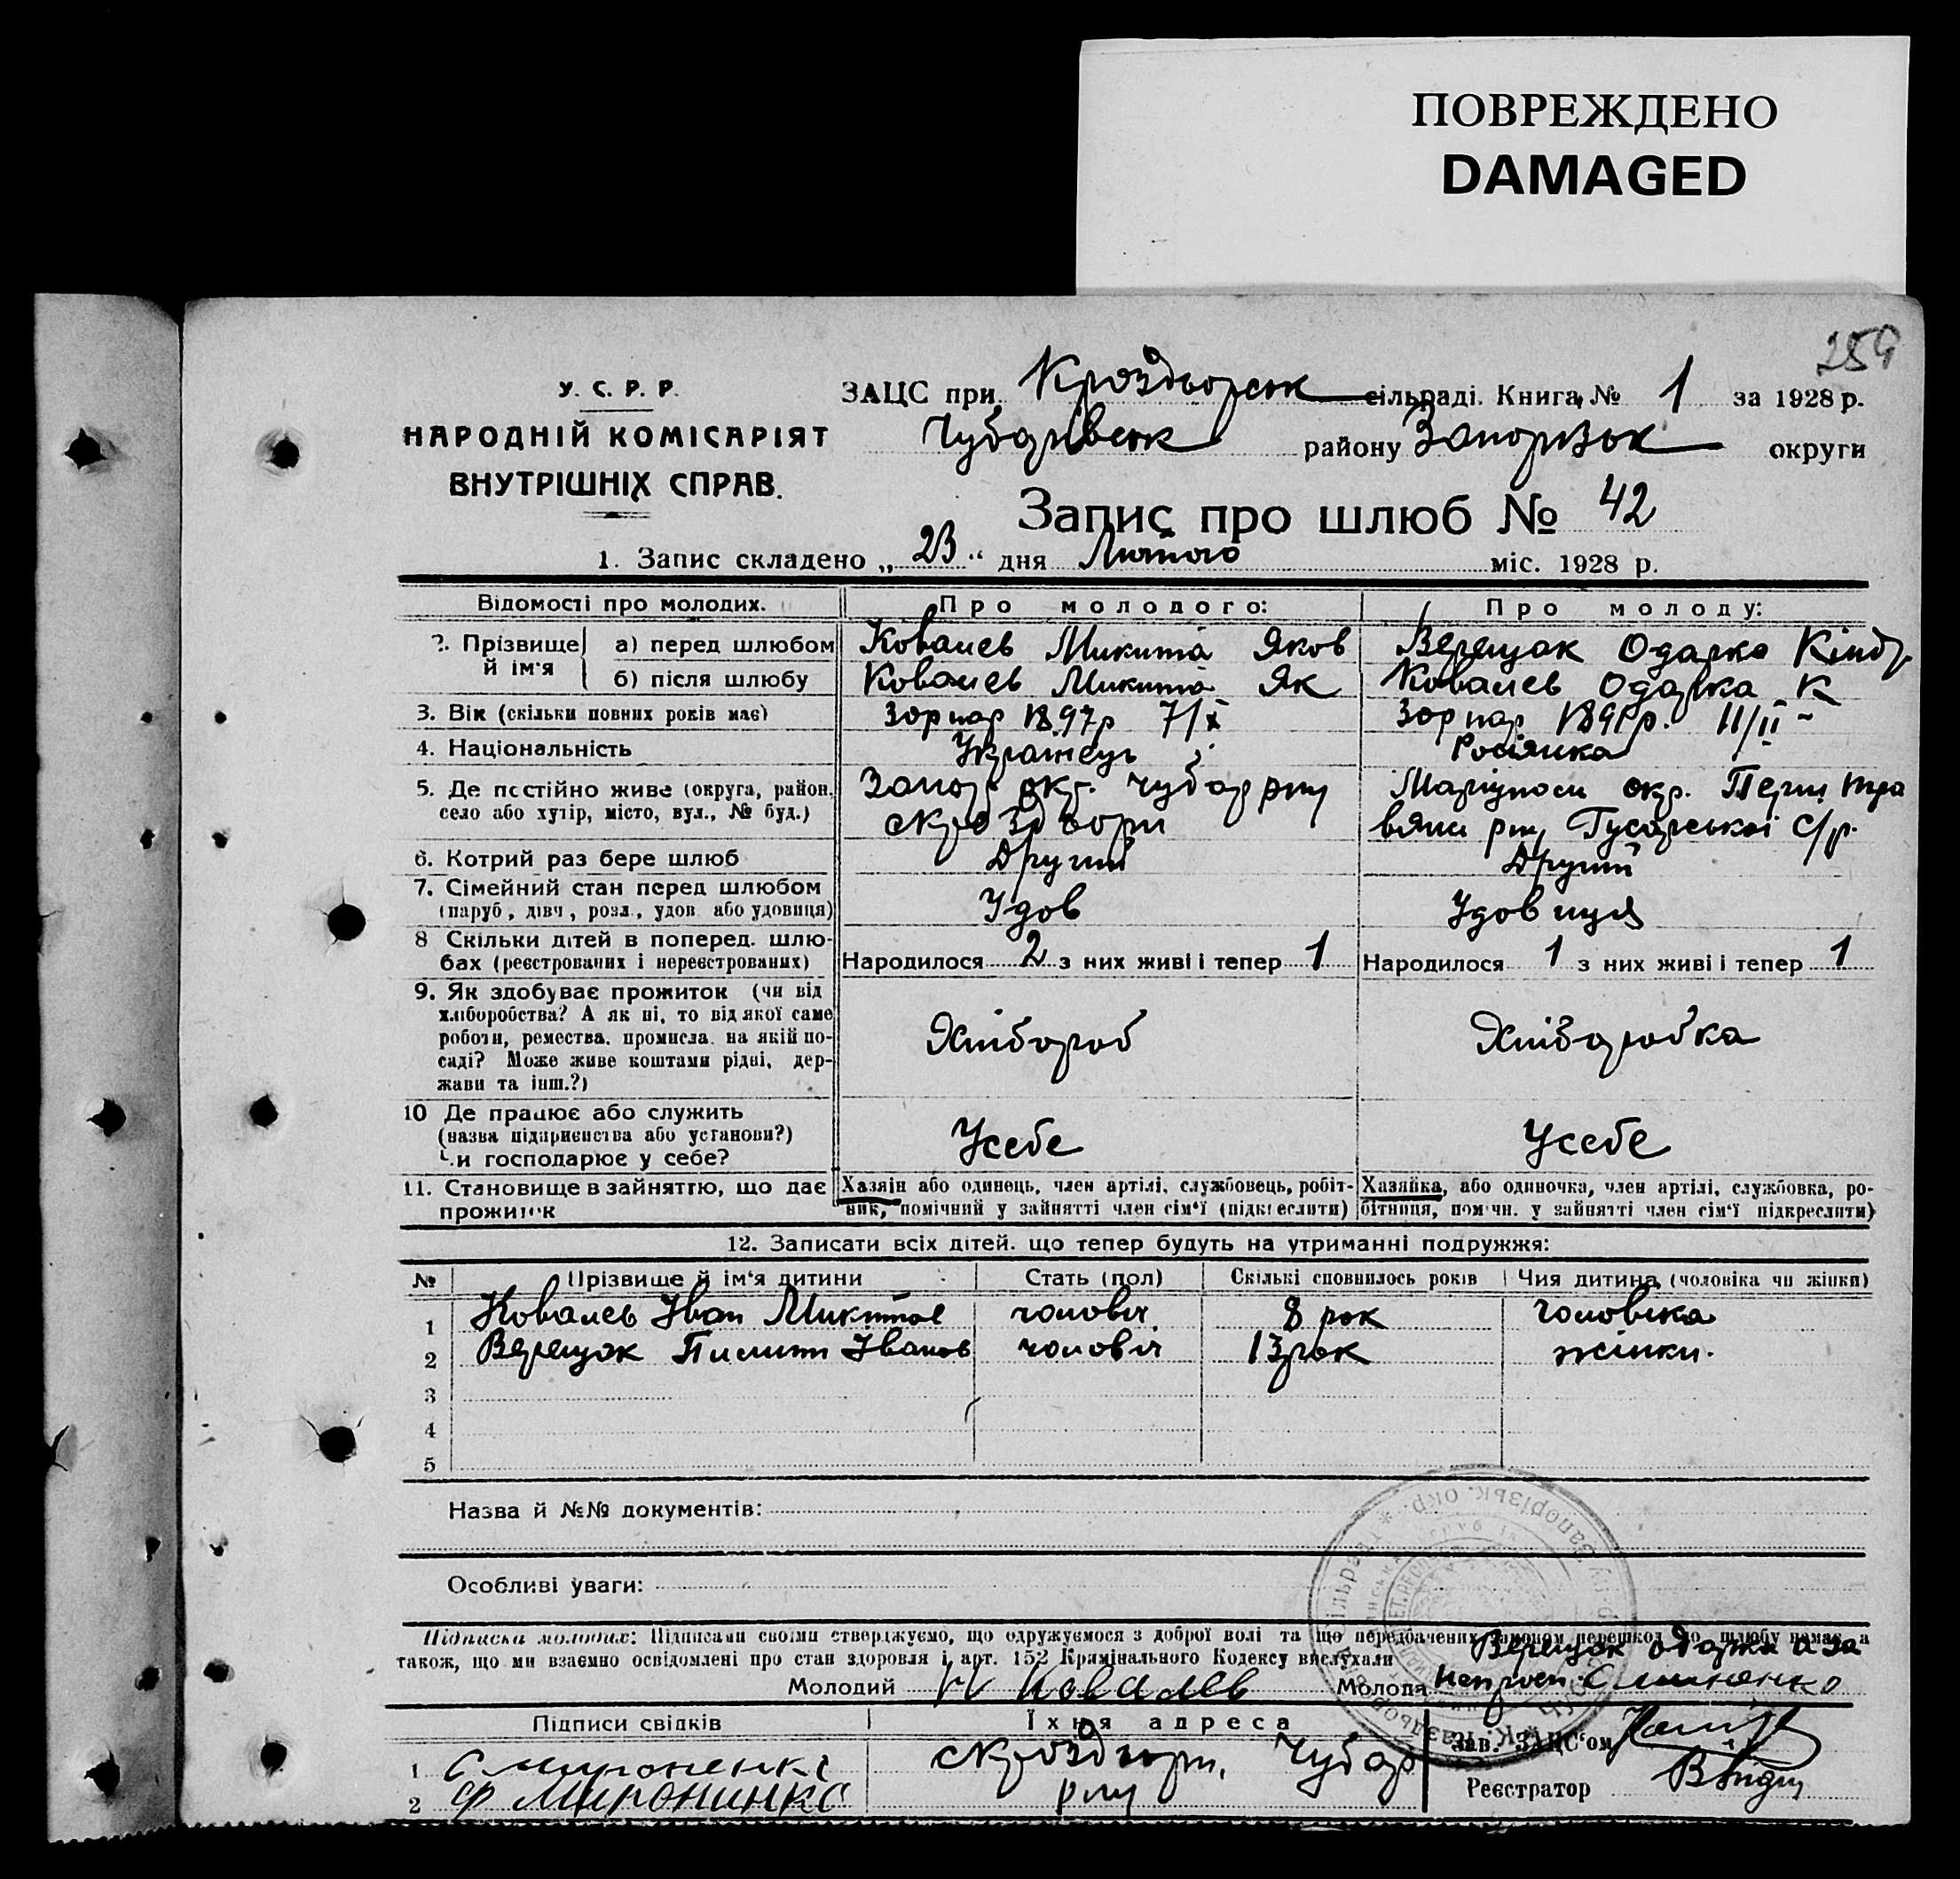 ПОВРЕЖДЕНО
DAMAGED
259
У. С. Р. Р.
НАРОДНІЙ КОМІСАРІЯТ
ВНУТРІШНІХ СПРАВ.
ЗАЦС при Кроздьорськ сільраді. Книга № 1 за 1928 р.
Чубарівськ району Запорізьк округи
Запис про шлюб № 42
1. Запис складено „ 23 “ дня Лютого міс. 1928 р.
Відомості про молодих. Про молодого: Про молоду:
2. Прізвище й ім'я
а) перед шлюбом Ковалев Микита Яков Верещак Одарка Кіндр
б) після шлюбу Ковалев Микита Як Ковалев Одарка К
3. Вік (скільки повних років має) 30р нар 1897р 7/X 30р нар 1898р. 11/II
4. Національність Українець Росіянка
5. Де постійно живе (округа, район, Запор окр. Чубар рну Маріупольск окр. Перш тра
село або хутір, місто, вул., № буд.) с Кроздьори вянск рну Гусарської с/р.
6. Котрий раз бере шлюб Другий Другий
7. Сімейний стан перед шлюбом
(паруб, дівч, розл., удов або удовиця) Удов Удовиця
8 Скільки дітей в поперед. шлю-
бах (реєстрованих і нереєстрованих) Народилося 2 з них живі і тепер 1 Народилося 1 з них живі і тепер 1
9. Як здобуває прожиток (чи від
хліборобства? А як ні, то від якої саме
роботи, ремества, промисла, на якій по- Хлібороб Хліборобка
саді? Може живе коштами рідні, дер-
жави та інш.?)
10 Де працює або служить
(назва підприємства або установи?) Усебе Усебе
Чи господарює у себе?
11. Становище в зайняттю, що дає Хазяін або одинець, член артілі, службовець, робіт- Хазяйка, або одиночка, член артілі, службовка, ро-
прожиток ник, помічний у зайнятті член сім'ї (підкреслити) бітниця, помічн. у зайнятті член сім'ї підкреслити)
12. Записати всіх дітей, що тепер будуть на утриманні подружжя:
№ Прізвище й ім'я дитини Стать (пол) Скількі сповнилось років Чия дитина (чоловіка чи жінки)
1 Ковалев Іван Микитов чоловіч. 8 рок чоловіка
2 Верещак Пилип Іванов чоловіч 13 рок жінки.
3
4
5
Назва й №№ документів:
Особливі уваги:
Підписка молодих: Підписами своїми стверджуємо, що одружуємося з доброї волі та що передбачених законом перешкод до шлюбу немає, а
також, що ми взаємно освідомлені про стан здоровля і арт. 152 Кримінального Кодексу вислухали
Верещак Одарка а за
Молодий Н Ковалев Молода
Підписи свідків Їхня адреса Зав. ЗАЦС'ом
1 с Кроздьори, Чубар
2 Ф Миронинко рну
Реєстратор